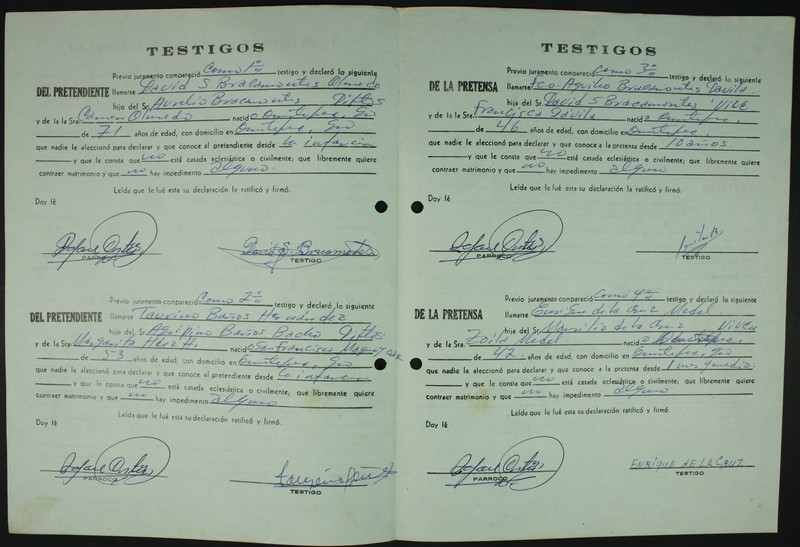 TESTIGOS
Previo juramento compareció como 1º testigo y declaró lo siguiente
DEL PRETENDIENTE llamarse David S Bracamontes Olmedo
hijo del Sr. Aurelio Bracamontes
y de la Sra. Carmen Olmedo nació
de 71 años de edad, con domicilio en Ometepec, Gro
que nadie le aleccionó para declarar y que conoce al pretendiente desde la infancia
y que le consta que no está casada eclesiástica o civilmente; que libremente quiere
contraer matrimonio y que no hay impedimento alguno.
Leída que le fué esta su declaración la ratificó y firmó.
Doy fé
PARROCO
David S. Bracamontes
TESTIGO
Previo juramento compareció como 2º testigo y declaró lo siguiente
DEL PRETENDIENTE llamarse Baños Hernández
hijo del Sr. Baños
y de la Sra. Margarita nació San Francisco
de 53 años de edad, con domicilio en Ometepec, Gro
que nadie le aleccionó para declarar y que conoce al pretendiente desde la infancia
y que le consta que no está casada eclesiástica o civilmente; que libremente quiere
contraer matrimonio y que no hay impedimento alguno
Leída que le fué esta su declaración la ratificó y firmó.
Doy fé
PARROCO
TESTIGO
TESTIGOS
Previo juramento compareció como 3º testigo y declaró lo siguiente
DE LA PRETENSA llamarse Fco. Aquileo Bracamontes Dávila.
hija del Sr. David S Bracamontes Vive
y de la Sra. Francisca Dávila nació
de 46 años de edad, con domicilio en Ometepec,
que nadie le aleccionó para declarar y que conoce a la pretensa desde 10 años.
y que le consta que no está casada eclesiástica o civilmente; que libremente quiere
contraer matrimonio y que no hay impedimento alguno
Leída que le fué esta su declaración la ratificó y firmó.
Doy fé
PARROCO
TESTIGO
Previo juramento compareció como 4º testigo y declaró lo siguiente
DE LA PRETENSA llamarse de la Cruz Medel
hija del Sr. de la Cruz Viven
y de la Sra. Zoila Medel nació
de 42. años de edad, con domicilio en Ometepec, Gro
que nadie le aleccionó para declarar y que conoce a la pretensa desde 1 mes y medio.
y que le consta que no está casada eclesiástica o civilmente; que libremente quiere
contraer matrimonio y que no hay impedimento alguno
Leída que le fué esta su declaración la ratificó y firmó.
Doy fé
PARROCO
ENRIQUE DE LA CRUZ
TESTIGO